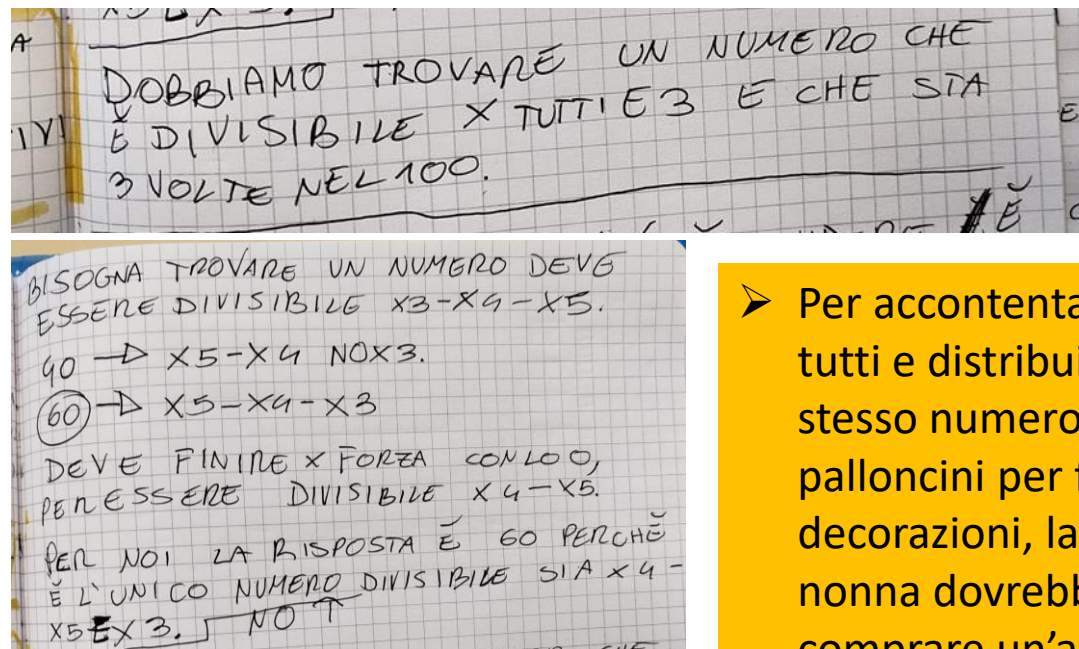 A
DOBBIAMO TROVARE UN NUMERO CHE
È DIVISIBILE X TUTTI E 3 E CHE STA
3 VOLTE NEL 100.
È
BISOGNA TROVARE UN NUMERO DEVE
ESSERE DIVISIBILE X3-X4-X5.
40 → X5-X4 NO X3.
60 → X5-X4-X3
DEVE FINIRE X FORZA CON LO 0,
PER ESSERE DIVISIBILE X4-X5.
PER NOI LA RISPOSTA È 60 PERCHÈ
È L'UNICO NUMERO DIVISIBILE SIA X4-
X5 E X3. NO ↑
➢ Per accontenta
tutti e distribui
stesso numero
palloncini per
decorazioni, la
nonna dovrebb
comprare un'a